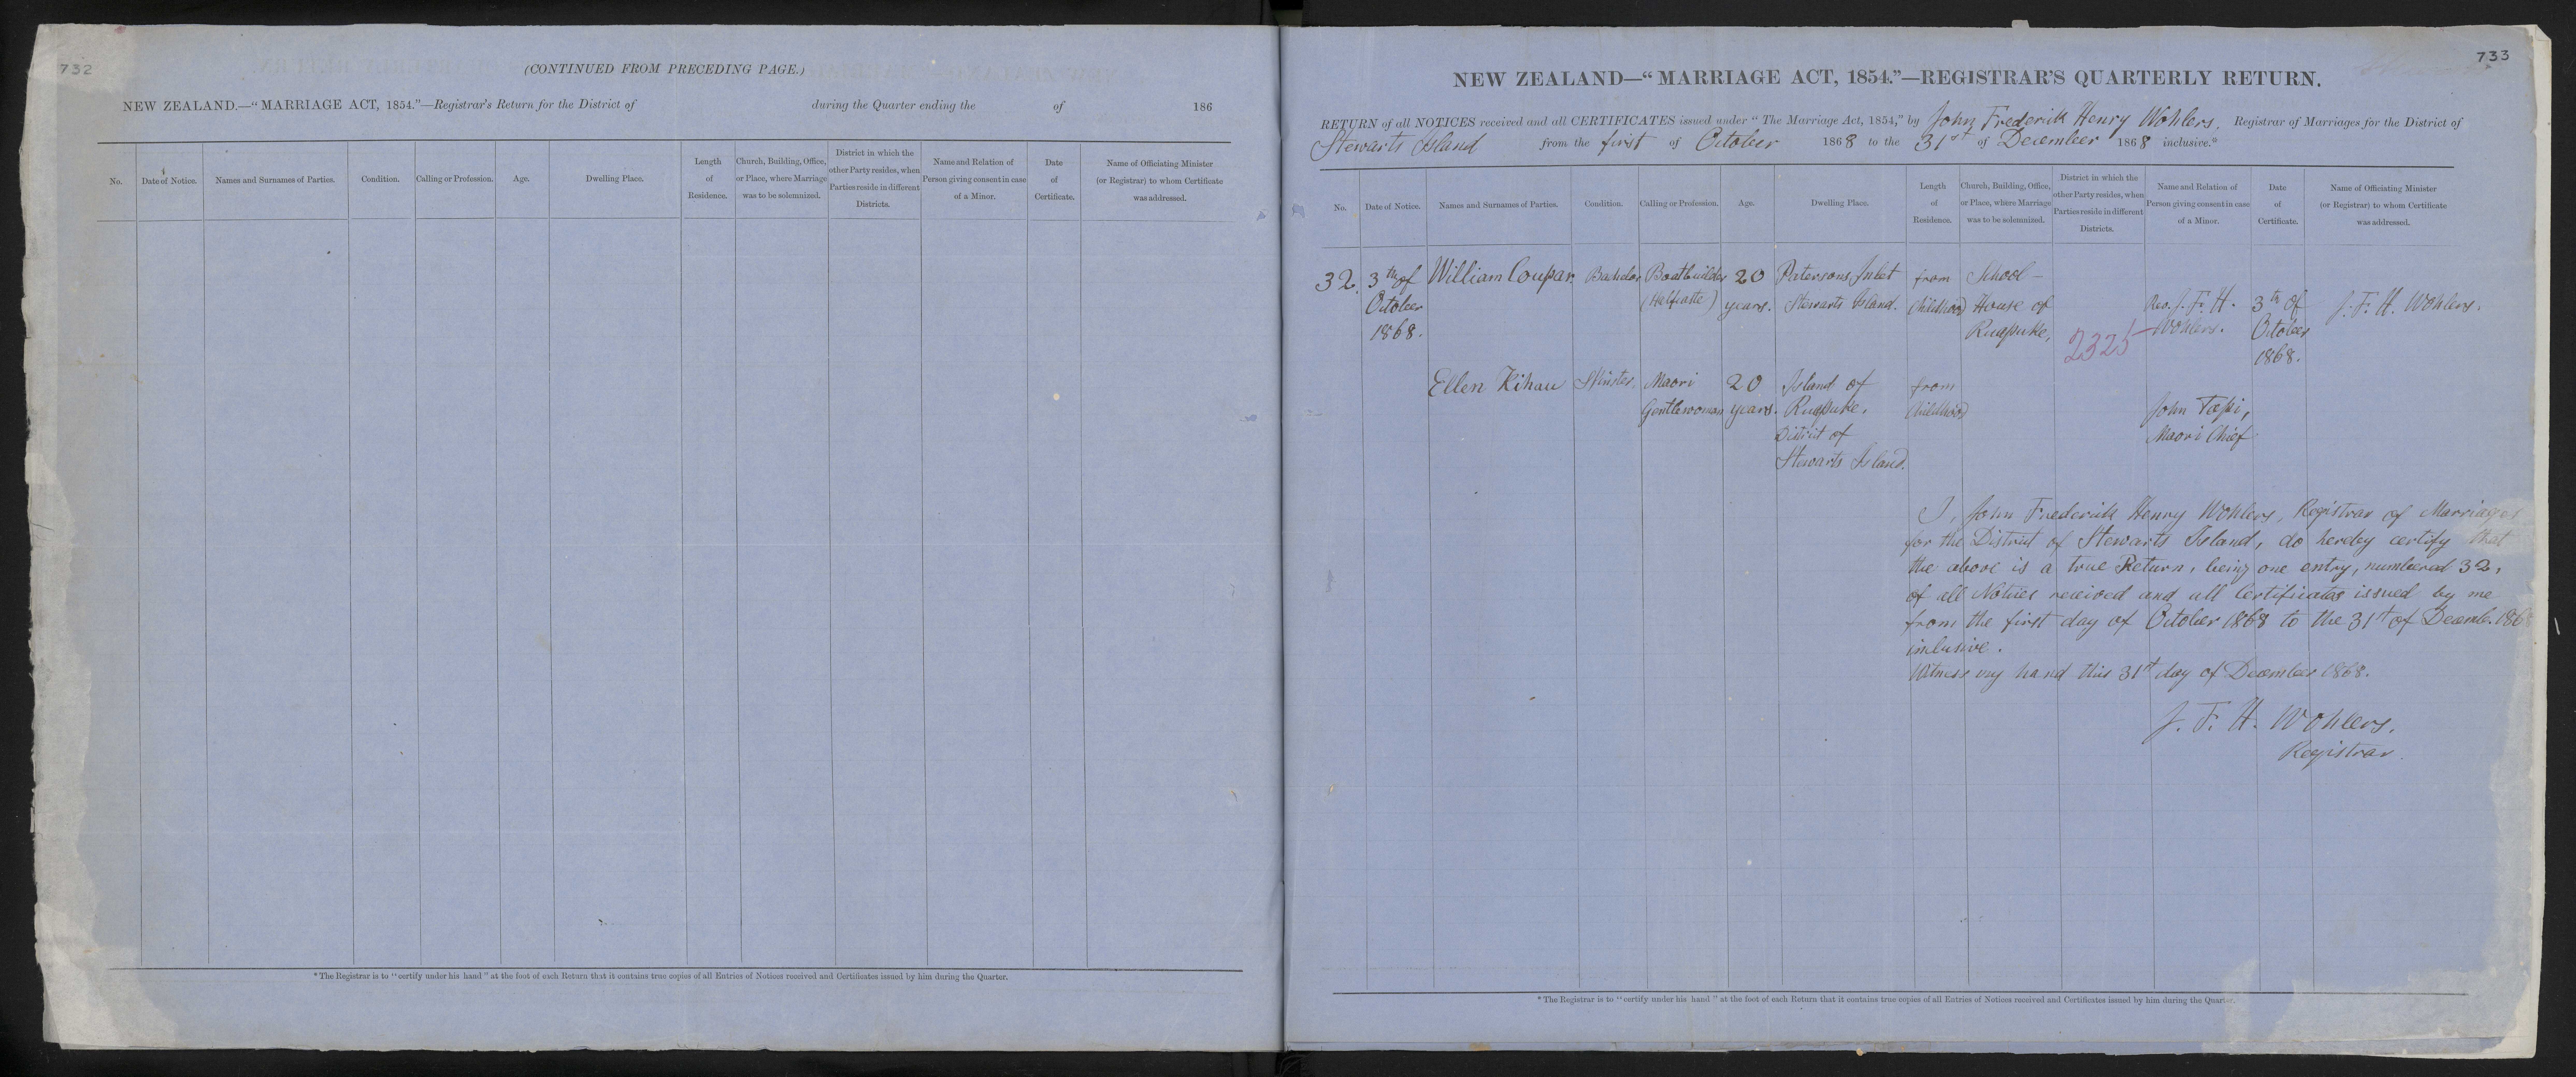 732
(CONTINUED FROM PRECEDING PAGE.)
NEW ZEALAND.—"MARRIAGE ACT, 1854."—Registrar's Return for the District of during the Quarter ending the of 186
No.
Date of Notice.
Names and Surnames of Parties.
Condition.
Calling or Profession.
Age.
Dwelling Place.
Length
of
Residence.
Church, Building, Office,
or Place, where Marriage
was to be solemnized.
District in which the
other Party resides, when
Parties reside in different
Districts.
Name and Relation of
Person giving consent in case
of a Minor.
Date
of
Certificate.
Name of Officiating Minister
(or Registrar) to whom Certificate
was addressed.
* The Registrar is to "certify under his hand" at the foot of each Return that it contains true copies of all Entries of Notices received and Certificates issued by him during the Quarter.
733
NEW ZEALAND—"MARRIAGE ACT, 1854."—REGISTRAR'S QUARTERLY RETURN.
RETURN of all NOTICES received and all CERTIFICATES issued under "The Marriage Act, 1854," by John Frederick Henry Wohlers, Registrar of Marriages for the District of
Stewarts Island from the first of October 1868 to the 31st of December 1868 inclusive.*
No.
Date of Notice.
Names and Surnames of Parties.
Condition.
Calling or Profession.
Age.
Dwelling Place.
Length
of
Residence.
Church, Building, Office,
or Place, where Marriage
was to be solemnized.
District in which the
other Party resides, when
Parties reside in different
Districts.
Name and Relation of
Person giving consent in case
of a Minor.
Date
of
Certificate.
Name of Officiating Minister
(or Registrar) to whom Certificate
was addressed.
32.
3th of
October
1868.
William Coupar.
Bachelor
Boatbuilder
(Halfcaste)
20
years.
Patersons Inlet
Stewarts Island.
from
Childhood
School-
House of
Ruapuke,
2325
Rev. J. F. H.
Wohlers.
3th of
October
1868.
J. F. H. Wohlers.
Ellen Kihau
Spinster.
Maori
Gentlewoman
20
years.
Island of
Ruapuke,
District of
Stewarts Island.
from
Childhood
John Topi,
Maori Chief
I, John Frederick Henry Wohlers, Registrar of Marriages
for the District of Stewarts Island, do hereby certify that
the above is a true Return, being one entry, numbered 32,
of all Notices received and all Certificates issued by me
from the first day of October 1868 to the 31st of Decemb. 1868
inclusive.
Witness my hand this 31st day of December 1868.
J. F. H. Wohlers.
Registrar.
* The Registrar is to "certify under his hand" at the foot of each Return that it contains true copies of all Entries of Notices received and Certificates issued by him during the Quarter.